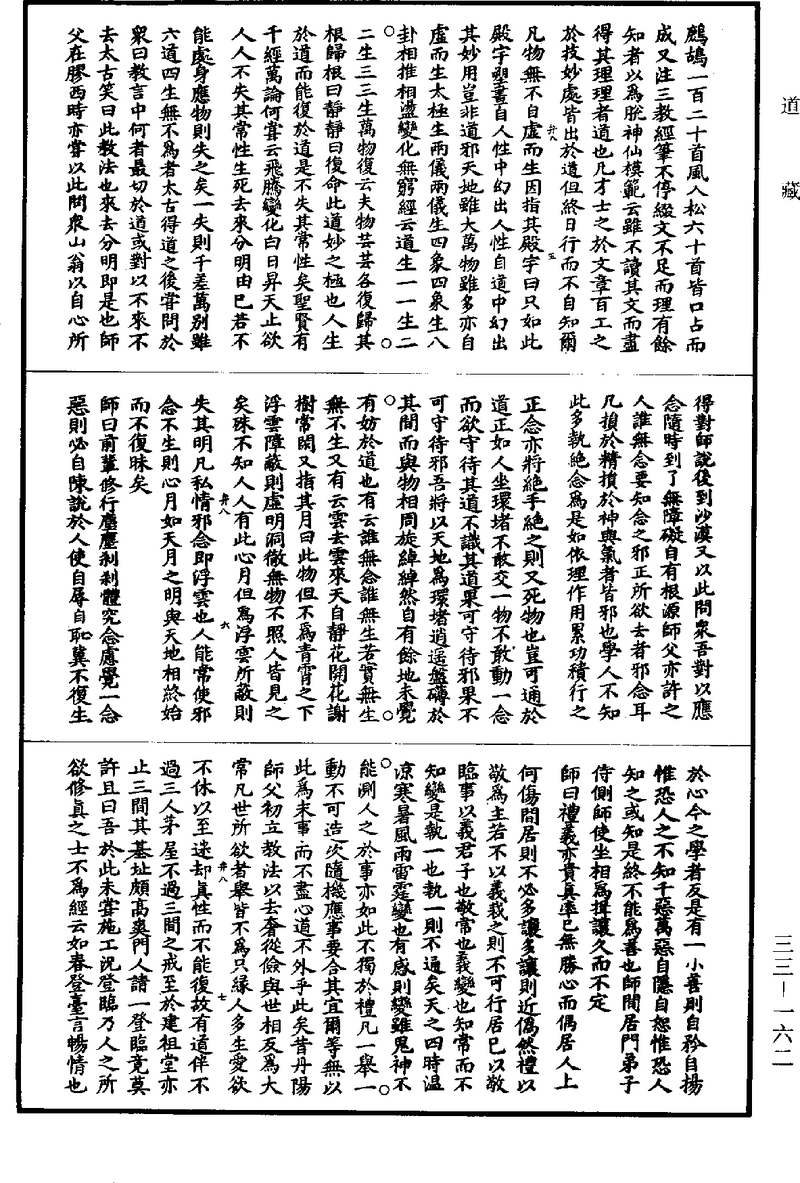 道藏
鷓鴣一百二十首風入松六十首皆口占而
成又注三教經筆不停綴文不足而理有餘
知者以為脫神仙模範云雖不讀其文而盡
得其理理者道也凡才士之於文章百工之
於技妙處皆出於道但終日行而不自知爾
凡物無不自虛而生因指其殿宇曰只如此
殿宇聖畫自人性中幻出人性自道中幻出
其妙用豈非道邪天地雖大萬物雖多亦自
虛而生太極生兩儀兩儀生四象四象生八
卦相推相盪變化無窮經云道生一一生二
二生三三生萬物復云夫物芸芸各復歸其
根歸根曰靜靜曰復命此道妙之極也人生
於道而能復於道是不失其常性矣聖賢有
千經萬論何嘗云飛騰變化白日昇天止欲
人人不失其常性生死去來分明由己若不
能處身應物則失之矣一失則千差萬別雖
六道四生無不為者太古得道之後嘗問於
眾曰教言中何者最切於道或對以不來不
去太古笑曰此教法也來去分明即是也師
父在膠西時亦嘗以此問眾山翁以自心所
弁八 五
得對師說後到沙漠又以此問眾吾對以應
念隨時到了無障礙自有根源師父亦許之
人誰無念要知念之邪正所欲去者邪念耳
凡損於精損於神與氣者皆邪也學人不知
此多執絕念為是如依理作用累功積行之
正念亦將絕乎絕之則又死物也豈可通於
道正如人坐環堵不敢交一物不敢動一念
而欲守待其道不識其道果可守待邪果不
可守待邪吾將以天地為環堵逍遙盤礡於
其間而與物相周旋綽綽然自有餘地未覺
有妨於道也有云誰無念誰無生若實無生
無不生又有云雲去雲來天自靜花開花謝
樹常閑又指其月曰此物但不為青霄之下
浮雲障蔽則虛明洞徹無物不照人皆見之
矣殊不知人人有此心月但為浮雲所蔽則
弁八 六
失其明凡私情邪念即浮雲也人能常使邪
念不生則心月如天月之明與天地相終始
而不復昧矣
師曰前輩修行塵塵剎剎體究念慮覺一念
惡則必自陳說於人使自辱自恥冀不復生
於心今之學者反是有一小善則自矜自揚
惟恐人之不知千惡萬惡自隱自恕惟恐人
知之或知是終不能為善也師閒居門弟子
侍側師使坐相為揖讓久而不定
師曰禮義亦貴真率已無勝心而偶居人上
何傷閒居則不必多讓多讓則近偽然禮以
敬為主若不以義裁之則不可行居己以敬
臨事以義君子也敬常也義變也知常而不
知變是執一也執一則不通矣天之四時溫
涼寒暑風雨雷霆變也有感則變雖鬼神不
能測人之於事亦如此不獨於禮凡一舉一
動不可造次隨機應事要合其宜爾等無以
此為末事而不盡心道不外乎此矣昔丹陽
師父初立教法以去奢從儉與世相反為大
常凡世所欲者舉皆不為只緣人多生愛欲
弁八 七
不休以至迷却真性而不能復故有道伴不
過三人茅屋不過三間之戒至於建祖堂亦
止三間其基址頗高爽門人請一登臨竟莫
許且曰吾於此未嘗施工況登臨乃人之所
欲修真之士不為經云如春登臺言暢情也
三三—一六二